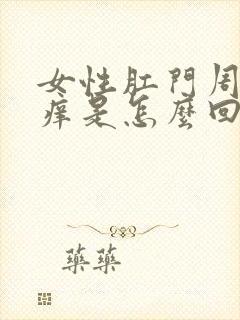 女性肛門周
痒是怎麼回
藥藥